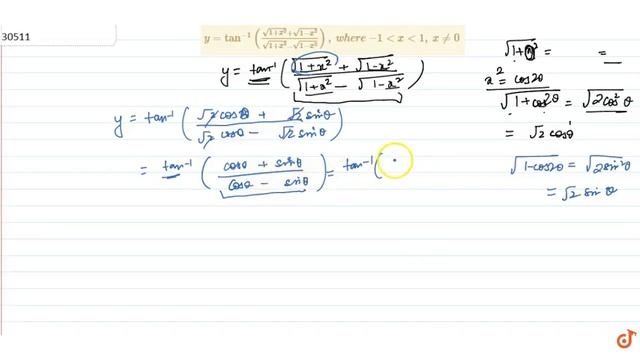 30511
y = tan⁻¹ ( (√1+x² + √1−x²) / (√1+x² − √1−x²) ) , where −1 < x < 1, x ≠ 0
y = tan⁻¹ ( (√1+x² + √1−x²) / (√1+x² − √1−x²) )
y = tan⁻¹ ( (√2 cosθ + √2 sinθ) / (√2 cosθ − √2 sinθ) )
= tan⁻¹ ( (cosθ + sinθ) / (cosθ − sinθ) ) = tan⁻¹ (
√1+x² = =
x² = cos2θ
√1+cos2θ = √2cos²θ
= √2 cosθ
√1−cos2θ = √2sin²θ
= √2 sinθ
doubtnut